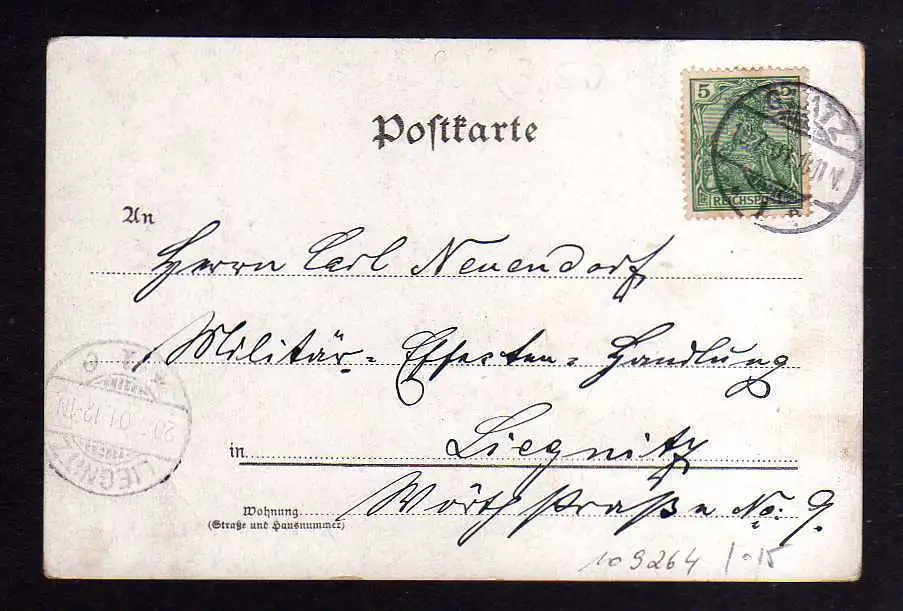 Postkarte
5
REICHSPOST
GLATZ
An
Herrn Carl Neuendorf
Militär- Effecten- Handlung
in Liegnitz
Wohnung
(Straße und Hausnummer)
Wörthstraße No. 9.
LIEGNITZ
109264 / 015